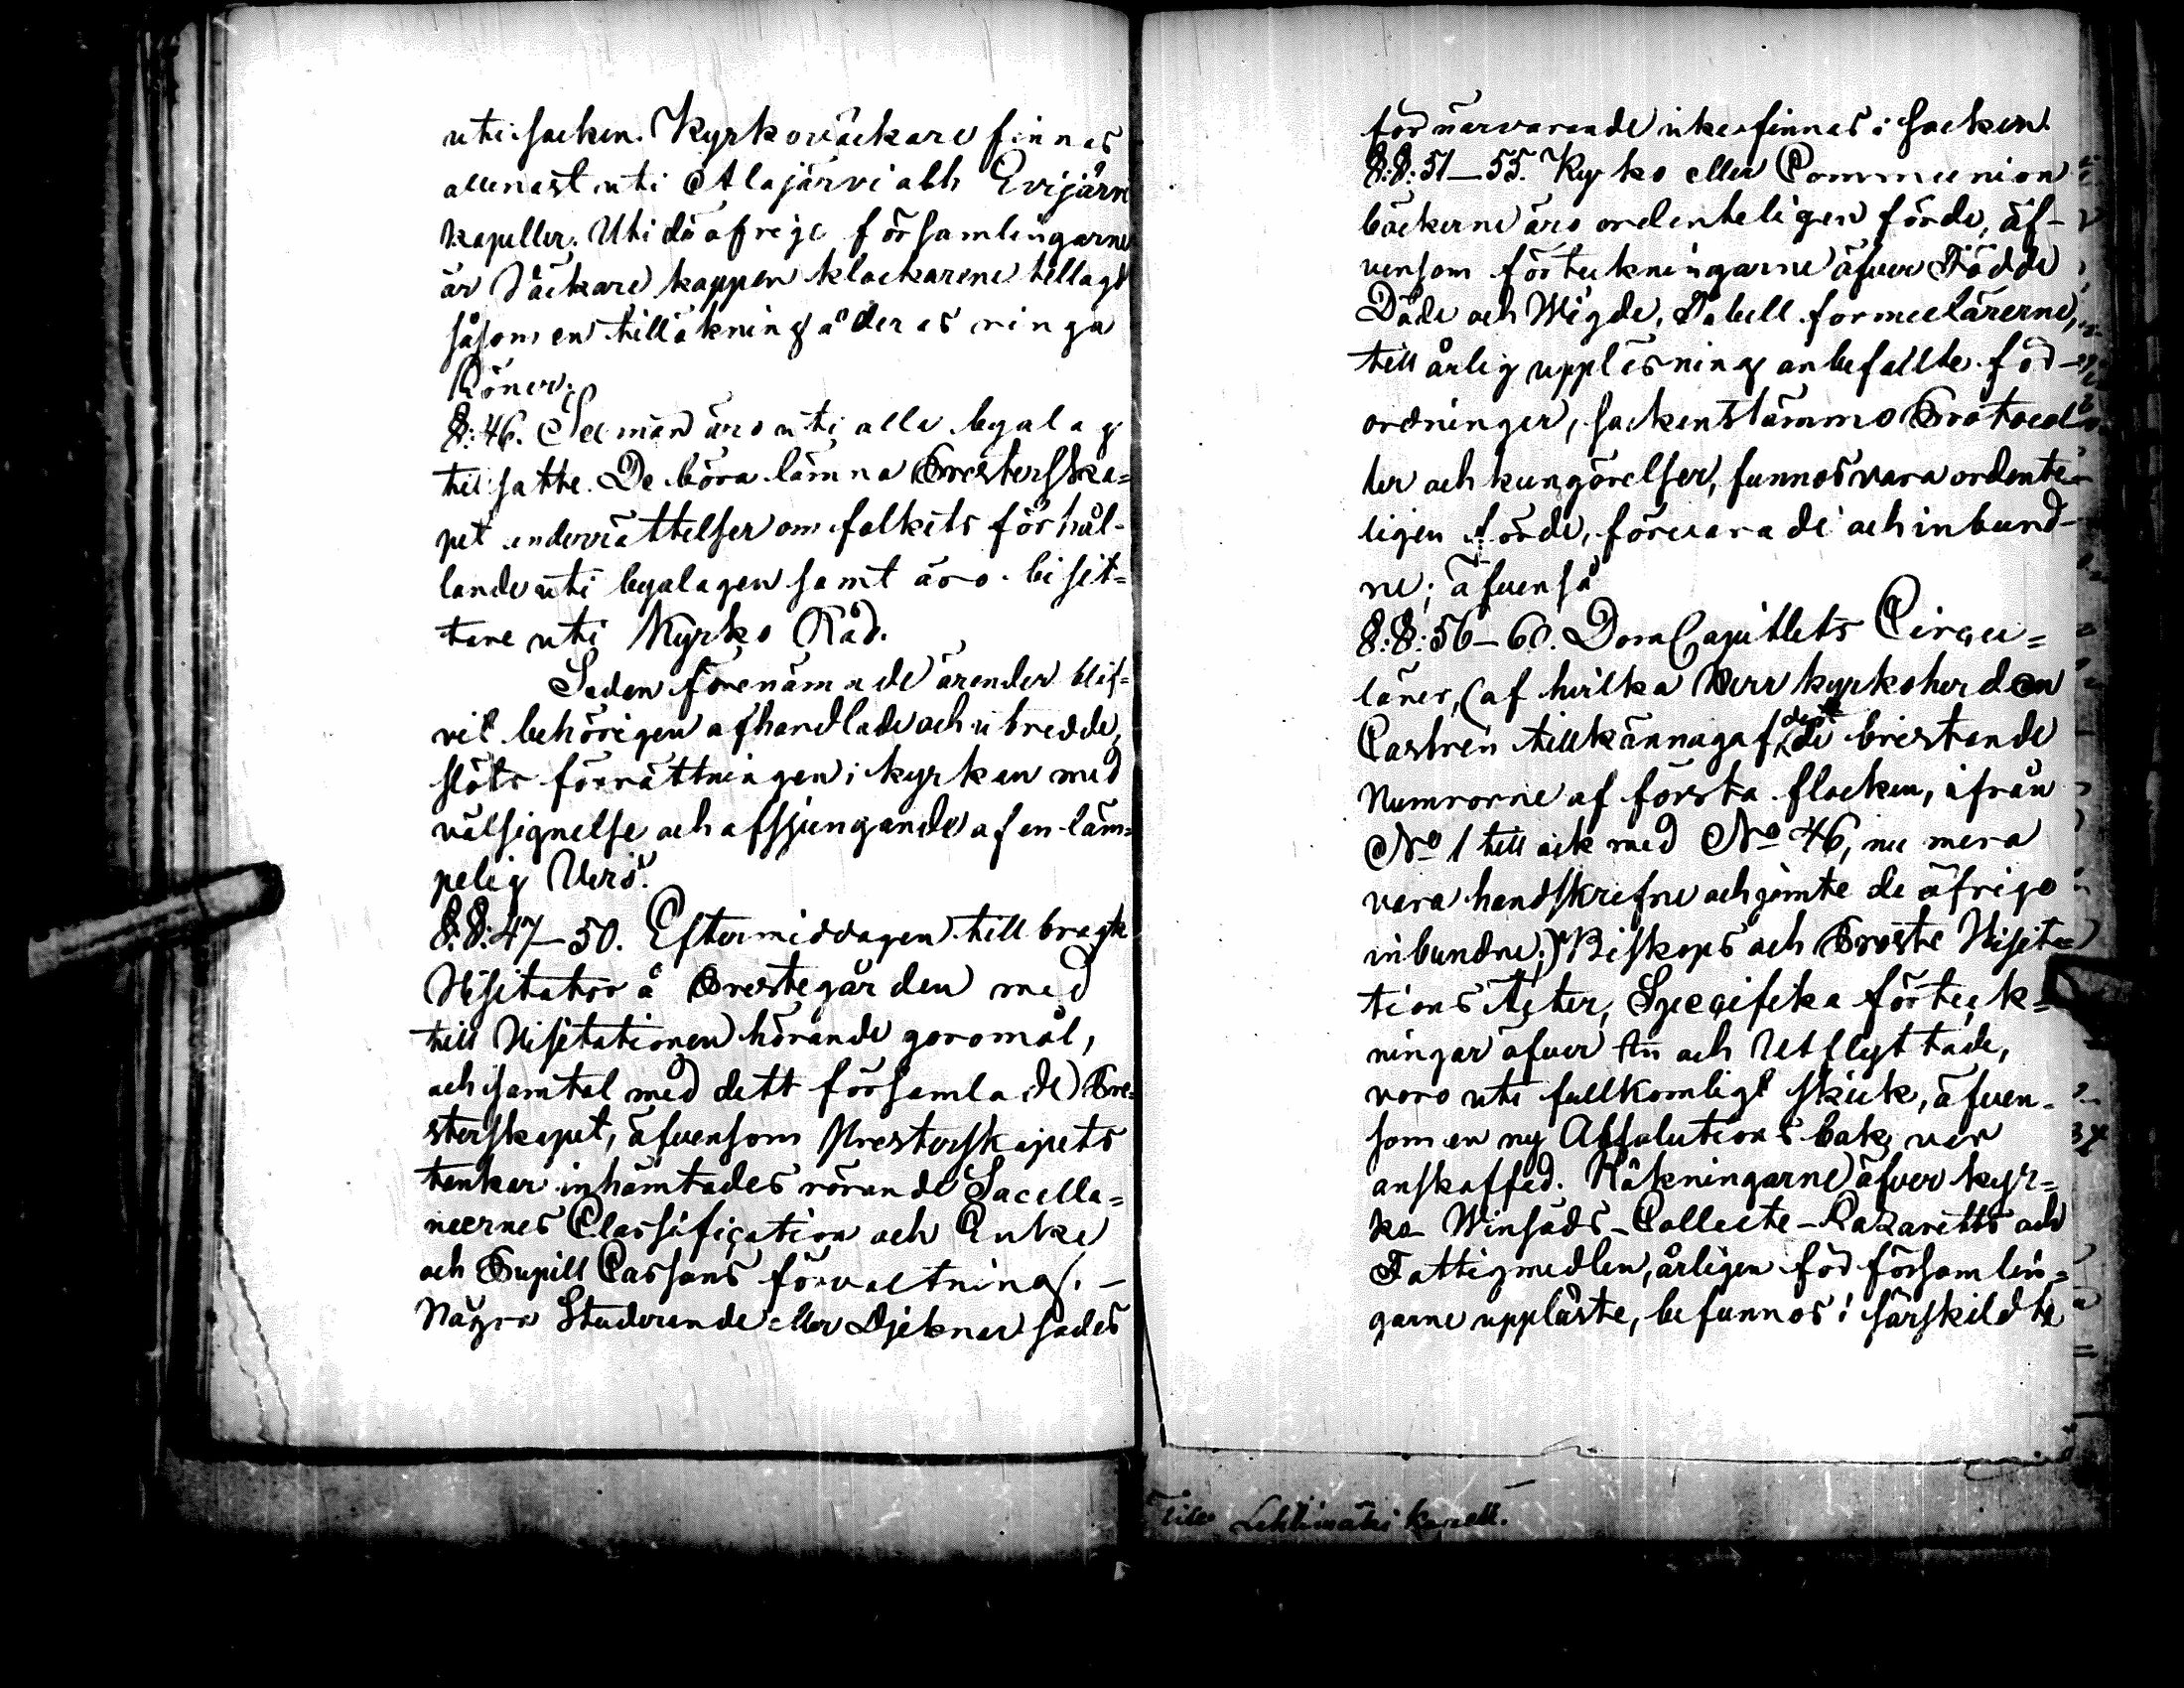 uti socken. Kyrkoväckare finnas
allenast uti Alajärvi och Evijärvi
kapeller. Uti de öfrige församlingarne
är Väckare kappen klockarene tillagd
såsom en tillökning å deras ringa
Löner.
§: 46. Sexmän äro uti alla byalag
tillsatte. De böra lämna Presterska=
pet underrättelser om folkets förhål-
lande uti byalagen samt äro bisit=
tare uti Kyrko Råd.
Sedan förenämnde ärender blif=
vit behörigen afhandlade och utredde,
slöts förrättningen i kyrkan med
välsignelse och afsjungande af en läm=
pelig Vers.
§:§: 47–50. Eftermiddagen tillbragte
Visitator å Prestegården med
till Visitationen hörande göromål,
och samtal med dett församlade Pre=
sterskapet, äfvensom Presterskapets
tankar inhämtades rörande Sacella=
neernes Classification och Enke
och Pupill Cassans förvaltning. –
Några Studerande eller Djeknar sades
för närvarande icke finnas i socken.
§:§: 51–55. Kyrko eller Communion
böckerne äro ordenteligen förde, äf-
vensom förteckningarne öfver Födde
Döde och Wigde. Tabell formulärerne,
till årlig uppläsning anbefallte för-
ordningar, sockenstämmo Protocol
ler och kungörelser, funnos vara ordente
ligen förde, förvarade och inbund-
ne; äfvenså
§:§: 56–60. DomCapitlets Circu=
lärer, (af hvilka Herr kyrkoherden
Castrén tillkännagaf de bristande
Numrorne af första flocken, ifrån
No 1 till och med No 46, nu mera
vara handskrifne och jämte de öfrige
inbundne;) Biskops och Proste Visita=
tions Acter, Specifika förteck=
ningar öfver In och Utflyttade,
voro uti fullkomligt skick, äfven-
som en ny Absolutions bok var
anskaffad. Räkningarne öfver kyr=
ko- Winsäds-Collecte-Lazaretts och
Fattigmedlen, årligen för församlin=
garne uppläste, befunnos i särskildte
Lehtimäki kapell.